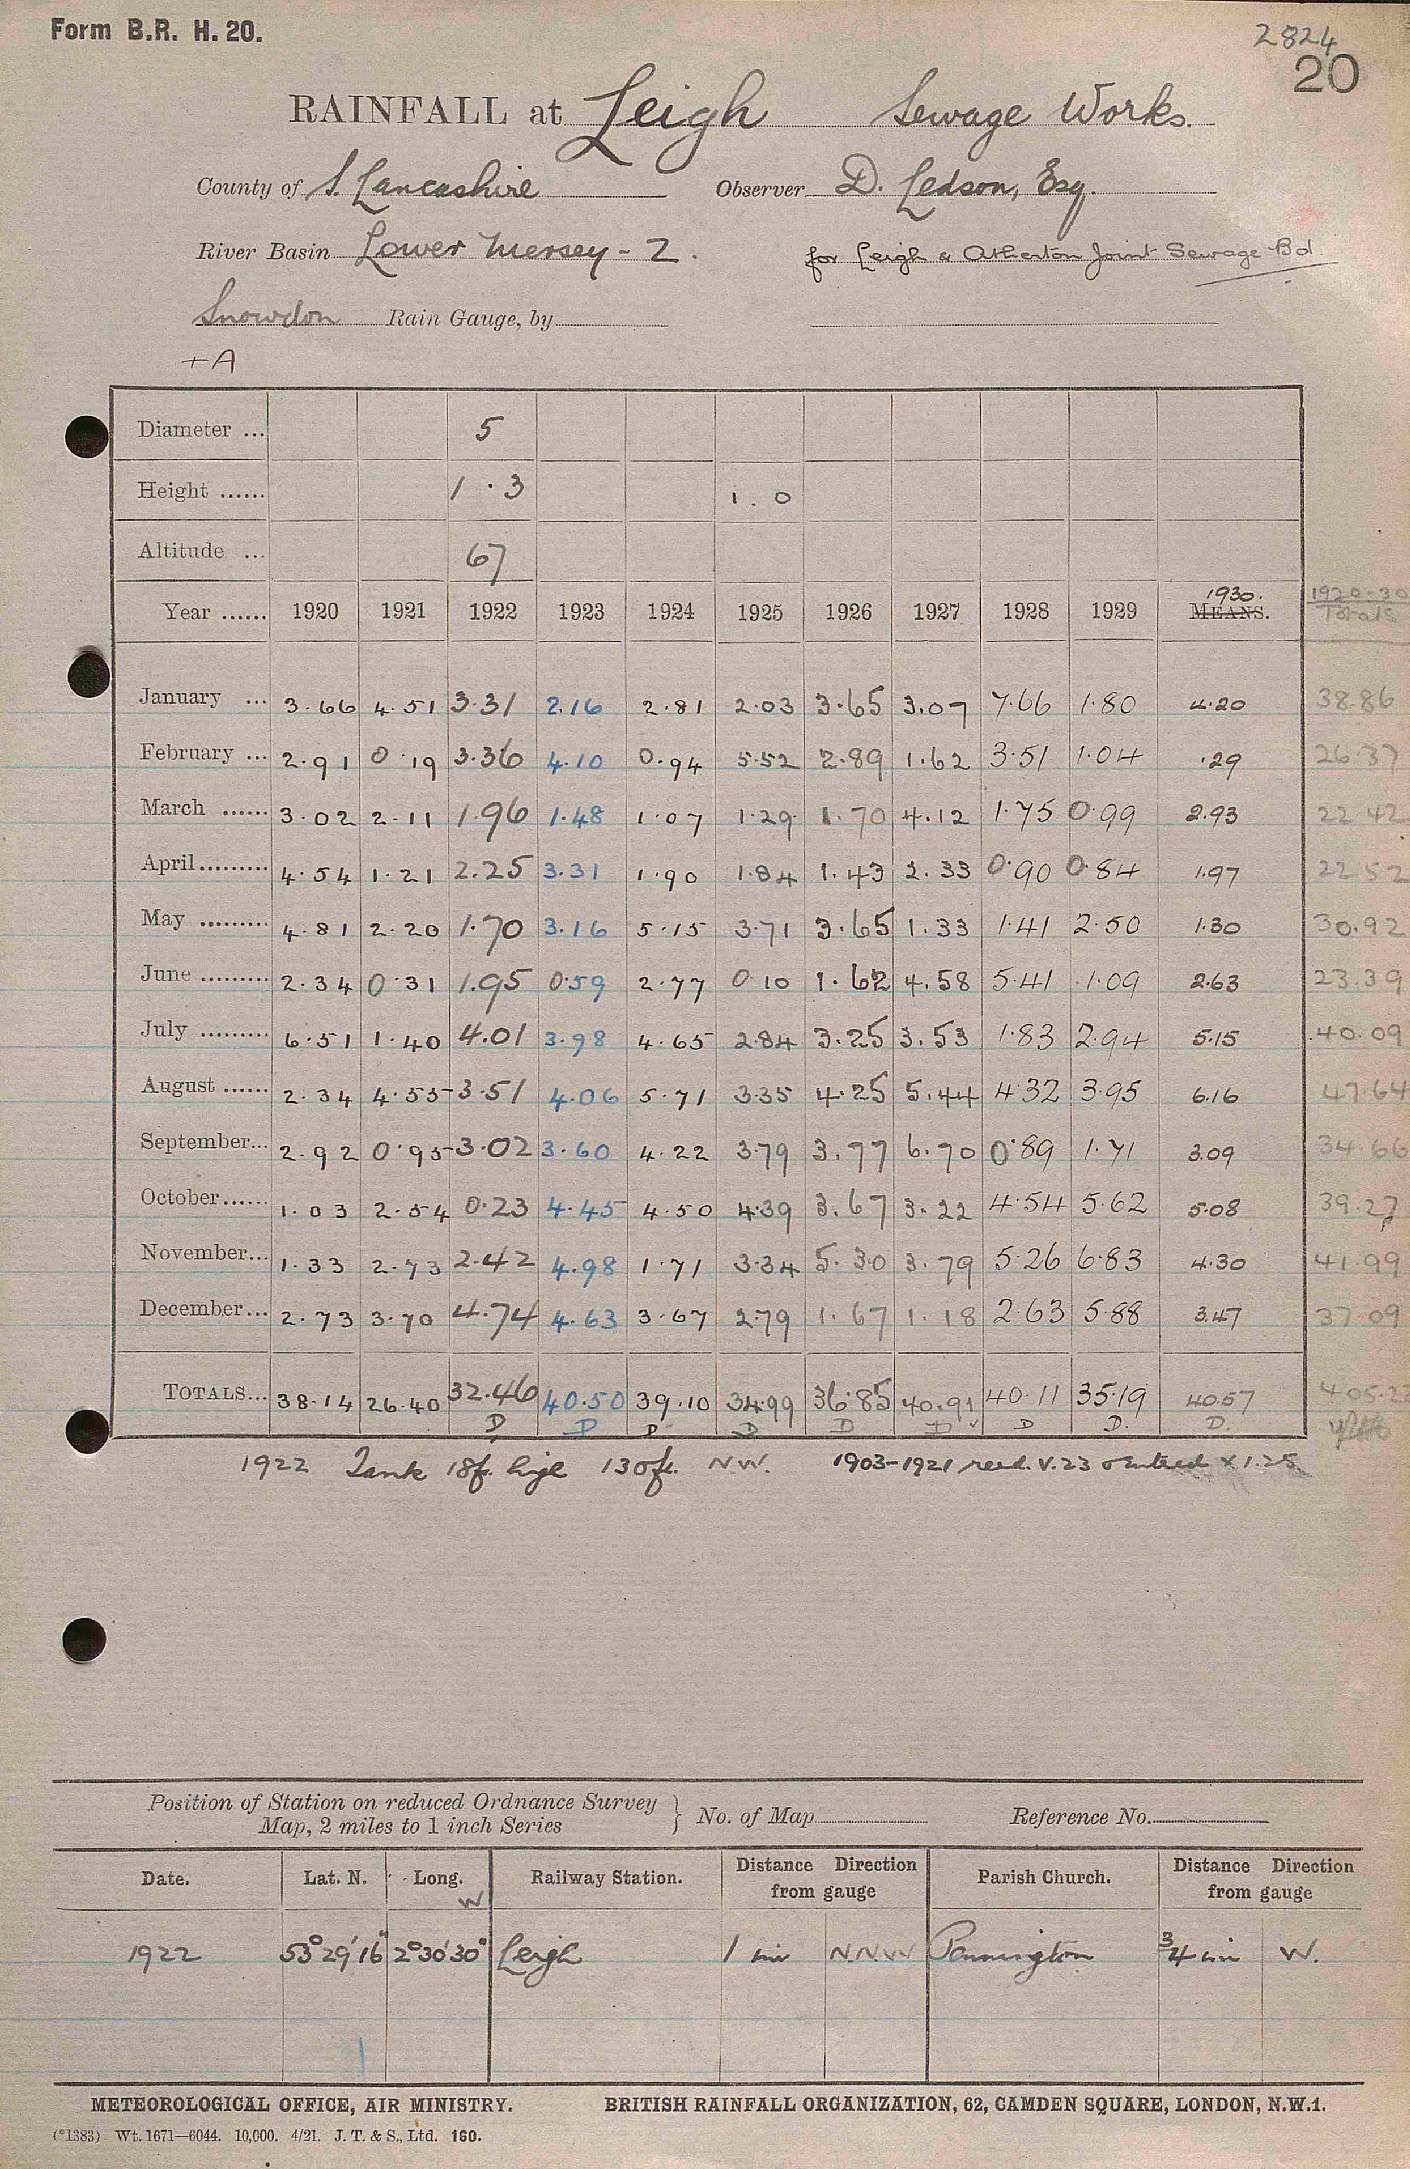 Form B.R. H. 20.
2824
20
RAINFALL at Leigh Sewage Works.
County of S. Lancashire Observer D. Ledson, Esq.
River Basin Lower Mersey - 2. for Leigh & Atherton Joint Sewage Bd
Snowdon Rain Gauge, by
+A
Diameter ... 5
Height ...... 1.3 1.0
Altitude ... 67
Year ...... 1920 1921 1922 1923 1924 1925 1926 1927 1928 1929 1930. MEANS. 1920-30 Totals
January ... 3.66 4.51 3.31 2.16 2.81 2.03 3.65 3.07 7.66 1.80 4.20 38.86
February ... 2.91 0.19 3.36 4.10 0.94 5.52 2.89 1.62 3.51 1.04 .29 26.37
March ...... 3.02 2.11 1.96 1.48 1.07 1.29 1.70 4.12 1.75 0.99 2.93 22.42
April ......... 4.54 1.21 2.25 3.31 1.90 1.84 1.43 2.33 0.90 0.84 1.97 22.52
May ......... 4.81 2.20 1.70 3.16 5.15 3.71 3.65 1.33 1.41 2.50 1.30 30.92
June ......... 2.34 0.31 1.95 0.59 2.77 0.10 1.62 4.58 5.41 1.09 2.63 23.39
July ......... 6.51 1.40 4.01 3.98 4.65 2.84 3.25 3.53 1.83 2.94 5.15 40.09
August ...... 2.34 4.55 3.51 4.06 5.71 3.35 4.25 5.44 4.32 3.95 6.16 47.64
September... 2.92 0.95 3.02 3.60 4.22 3.79 3.77 6.70 0.89 1.71 3.09 34.66
October...... 1.03 2.54 0.23 4.45 4.50 4.39 3.67 3.22 4.54 5.62 5.08 39.27
November... 1.33 2.73 2.42 4.98 1.71 3.34 5.30 3.79 5.26 6.83 4.30 41.99
December... 2.73 3.70 4.74 4.63 3.67 2.79 1.67 1.18 2.63 5.88 3.47 37.09
TOTALS... 38.14 26.40 32.46 40.50 39.10 34.99 36.85 40.91 40.11 35.19 40.57 405.22
D D D D D D D D. D.
1922 Tank 18ft. high 130ft. N.W. 1903-1921 recd. V.23 entered x 1.25
Position of Station on reduced Ordnance Survey Map, 2 miles to 1 inch Series } No. of Map Reference No.
Date. Lat. N. Long. W Railway Station. Distance Direction from gauge Parish Church. Distance Direction from gauge
1922 53° 29' 16" 2° 30' 30" Leigh 1 mi N.N.W Pennington 3/4 mi W.
METEOROLOGICAL OFFICE, AIR MINISTRY. BRITISH RAINFALL ORGANIZATION, 62, CAMDEN SQUARE, LONDON, N.W.1.
(*1383) Wt. 1671—6044. 10,000. 4/21. J. T. & S., Ltd. 160.